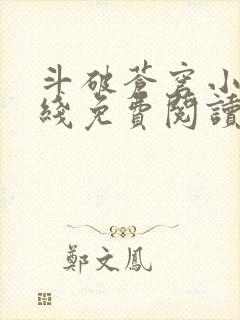 斗破苍穹小
綫免費閱讀
鄭文鳳